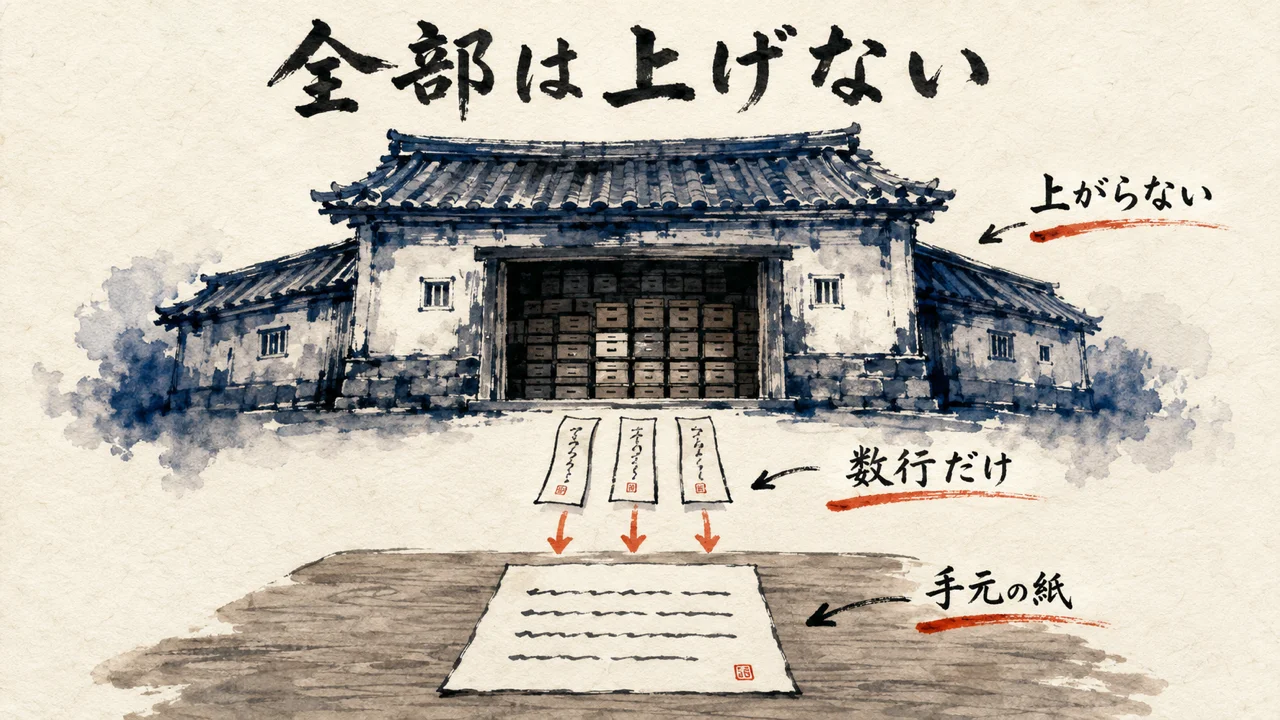 全部は上げない
上がらない
数行だけ
手元の紙